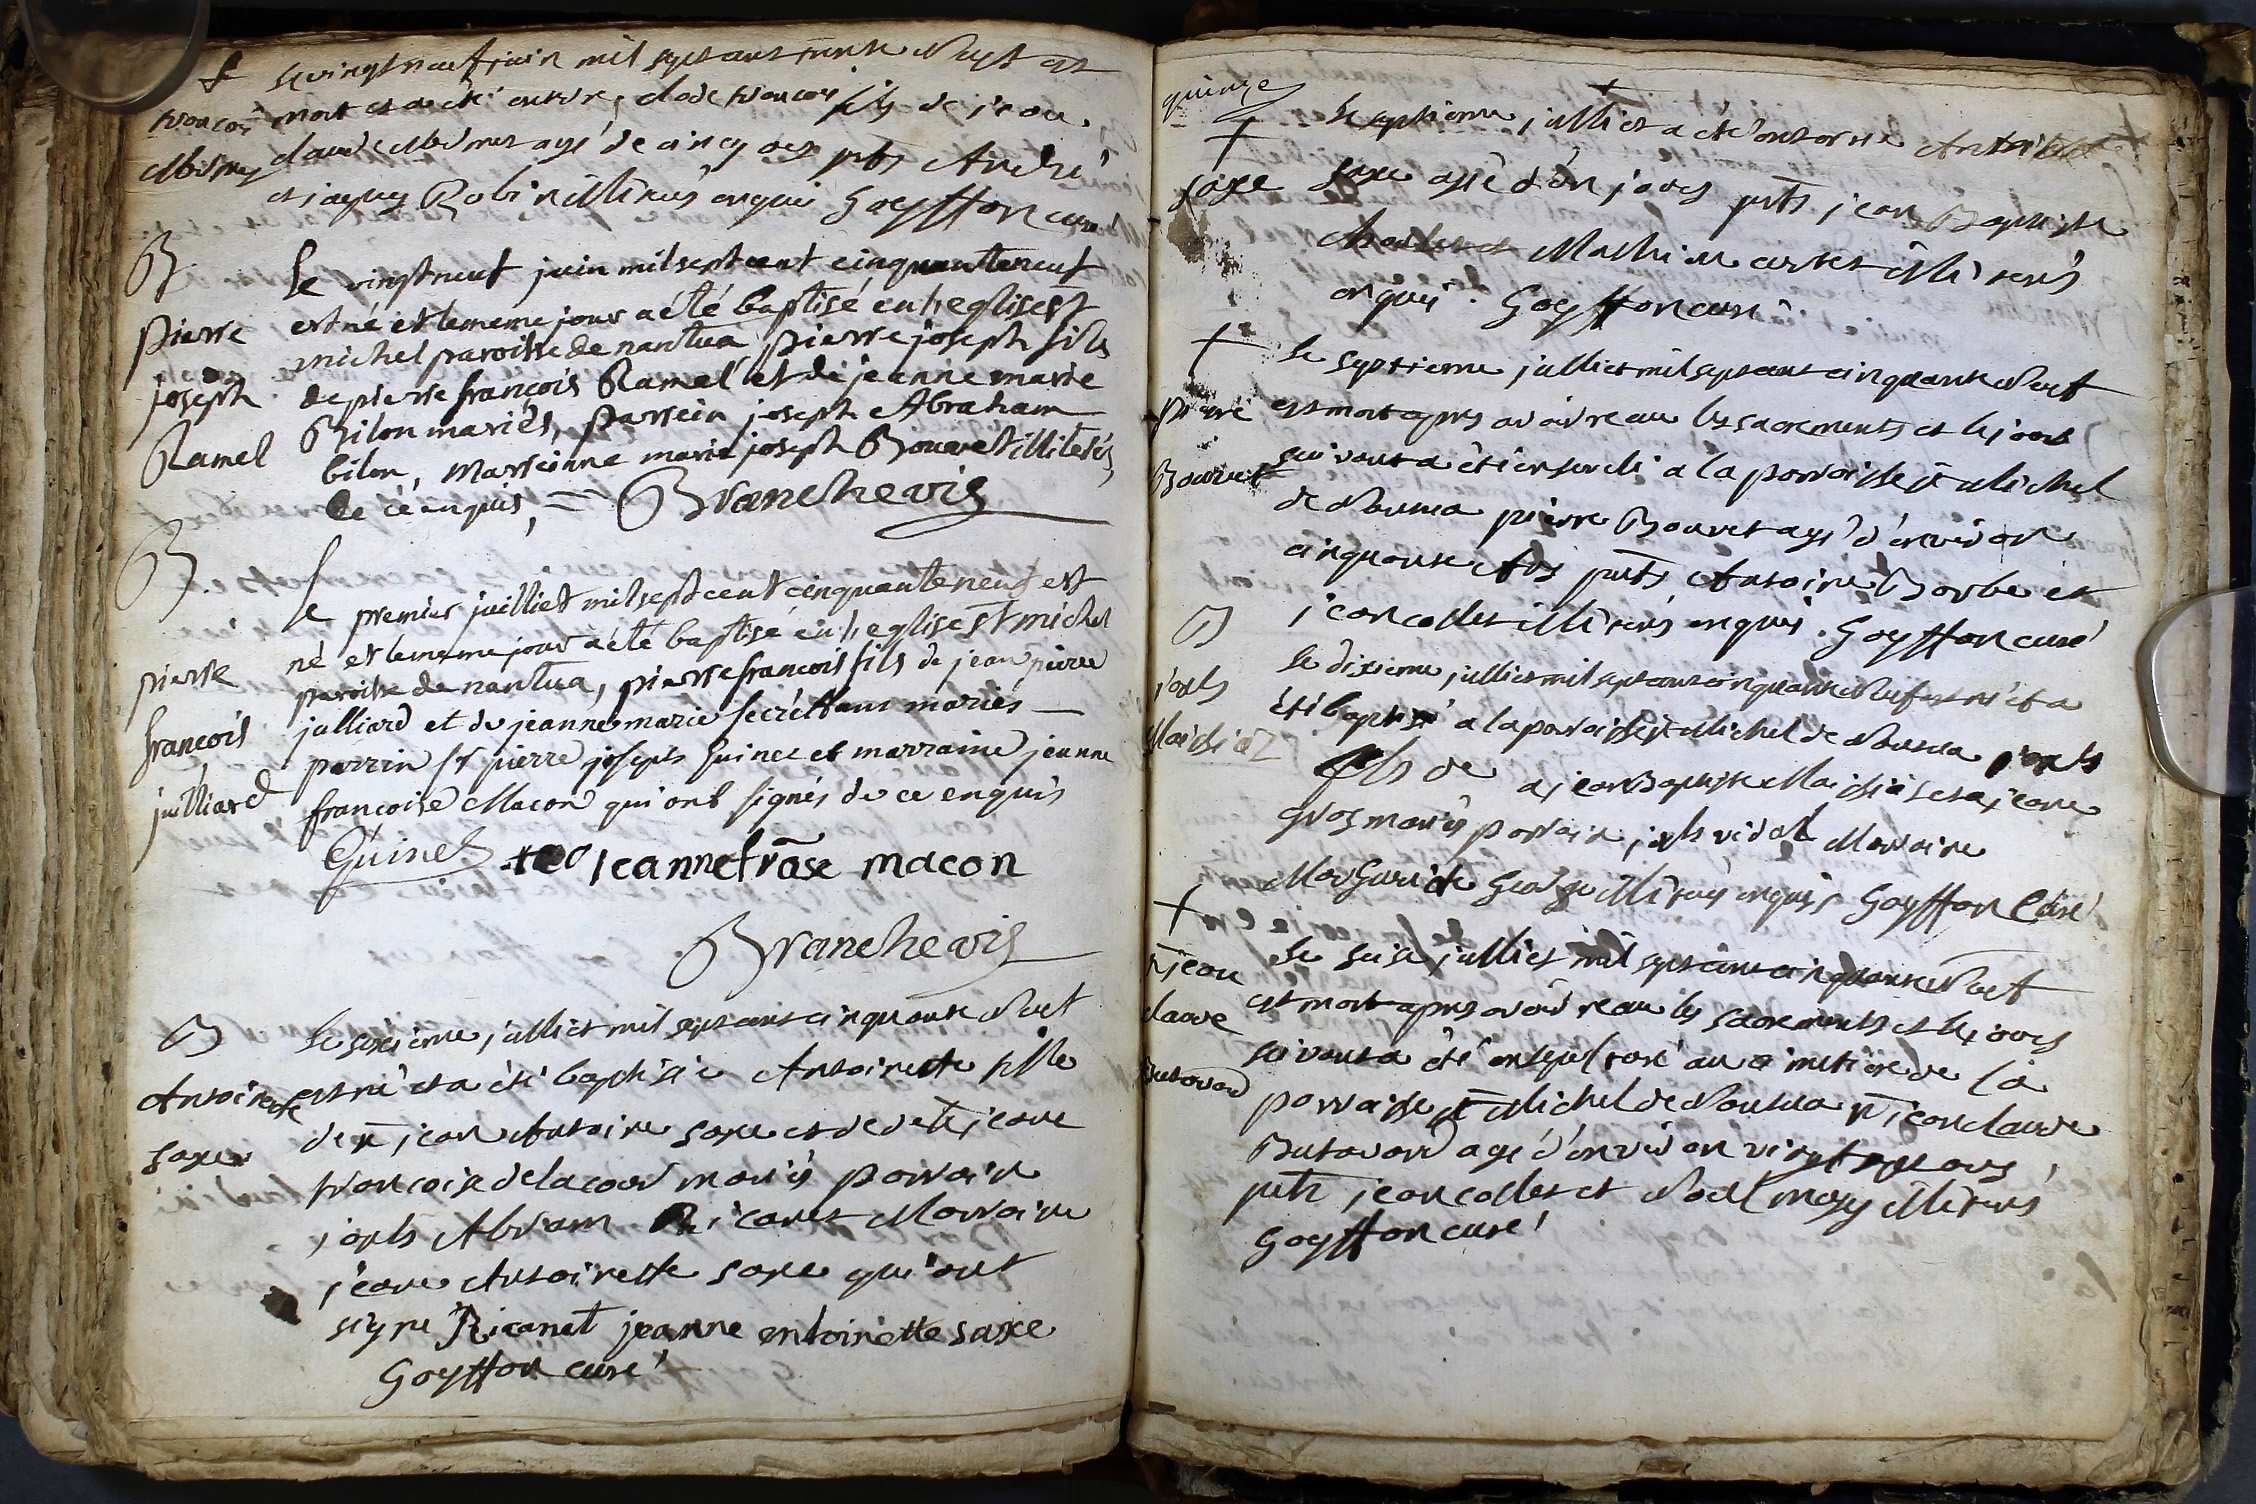 le vingt neuf juin mil sept cent
francois mort et a été enterré, clode francois fils de jean
claude agé de cinq ans pnts André
et jaques Robin illiterés enquis Goyffon curé
B
le vingt neuf juin mil sept cent cinquante neuf
est né et le meme jour a été baptisé en l'eglise st
pierre
michel paroisse de nantua pierre joseph fils
joseph
de pierre françois Ramel et de jeanne marie
Ramel
Bilon mariés, parrein joseph Abraham
bilon, marreinne marie joseph Bouvet illiterés
de ce enquis, = Branchevis
B.
le premier juilliet mil sept cent cinquante neuf est
né et le meme jour a été baptisé en l'eglise st michel
pierre
paroisse de nantua, pierre francois fils de jean pierre
françois
julliard et de jeanne marie secréttant mariés
juilliard
parrin sr pierre joseph guinet et marraine jeanne
francoise Macon qui ont signés de ce enquis
Guinet jeanne frāse macon
Branchevis
B
le sixieme julliet mil sept cent cinquante neuf
Antoinette
est né et a été baptisée Antoinette fille
de sr jean Antoine saxe et de delle jeane
saxe
francoise delacour mariés parrain
josph Abriam Ricanet Marraine
jeane Antoinette saxe qui ont
signe Ricanet jeanne entoinette saxe
Goyffon curé
quinze
+
+
le septieme julliet a été enterré Antoinette
saxe
saxe agée d'un jours pnts jean Baptiste
et Mathieu illiterés
enquis. Goyffon curé
+
le septieme julliet mil sept cent cinquante neuf
pierre
est mort apres avoir receu les sacrements et le jour
Bouvet
suivant a été enseveli a la parroisse st Michel
de Nantua pierre Bouvet agé d'environ
cinquante Ans pnts Antoine Barbe et
jean collet illiterés enquis. Goyffon curé
B
le dixieme julliet mil sept cent cinquante neuf est né et a
josph
été baptisé a la paroisse st Michel de Nantua josph
Maissiaz
fils de a jean Baptiste Maissiaz et a jeane
gros mariés parrain josph vidal Marraine
Marguerite George illiterés enquis Goyffon Curé
+
le seise julliet mil sept cent cinquante neuf
sr jean
est mort apres avoir receu les sacrements et le jours
claude
suivant a été ensepulturé au cimetiere de la
Butavand
parroisse st Michel de Nantua sr jean claude
Butavand agé d'environ vingt sept ans,
pnts jean collet et Noel illiterés
Goyffon curé